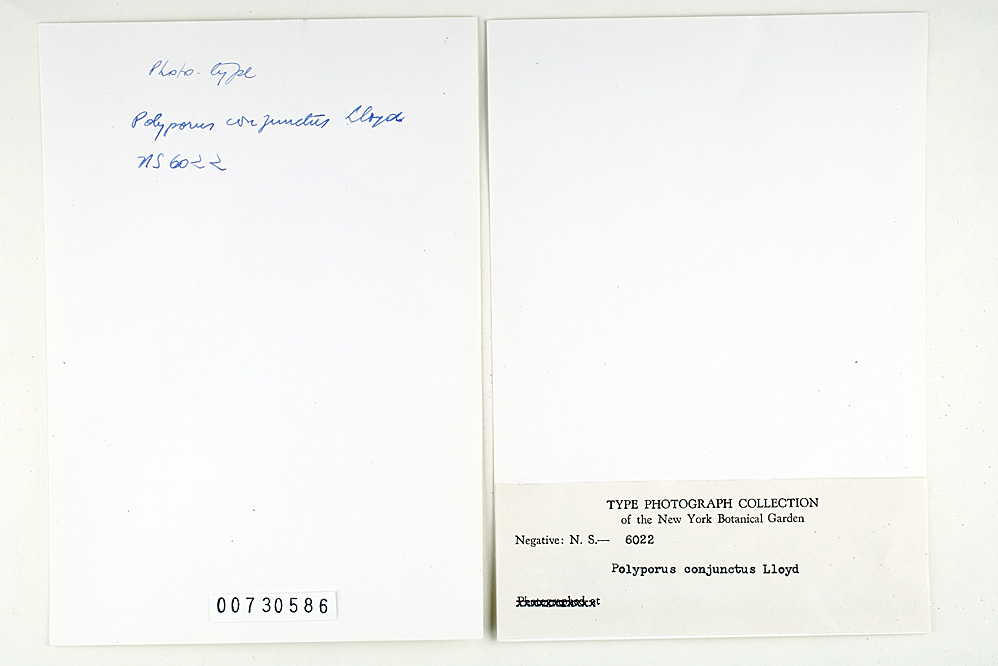 Photo-type
Polyporus conjunctus Lloyd
NS 6022
00730586
TYPE PHOTOGRAPH COLLECTION
of the New York Botanical Garden
Negative: N. S.— 6022
Polyporus conjunctus Lloyd
Photographed at